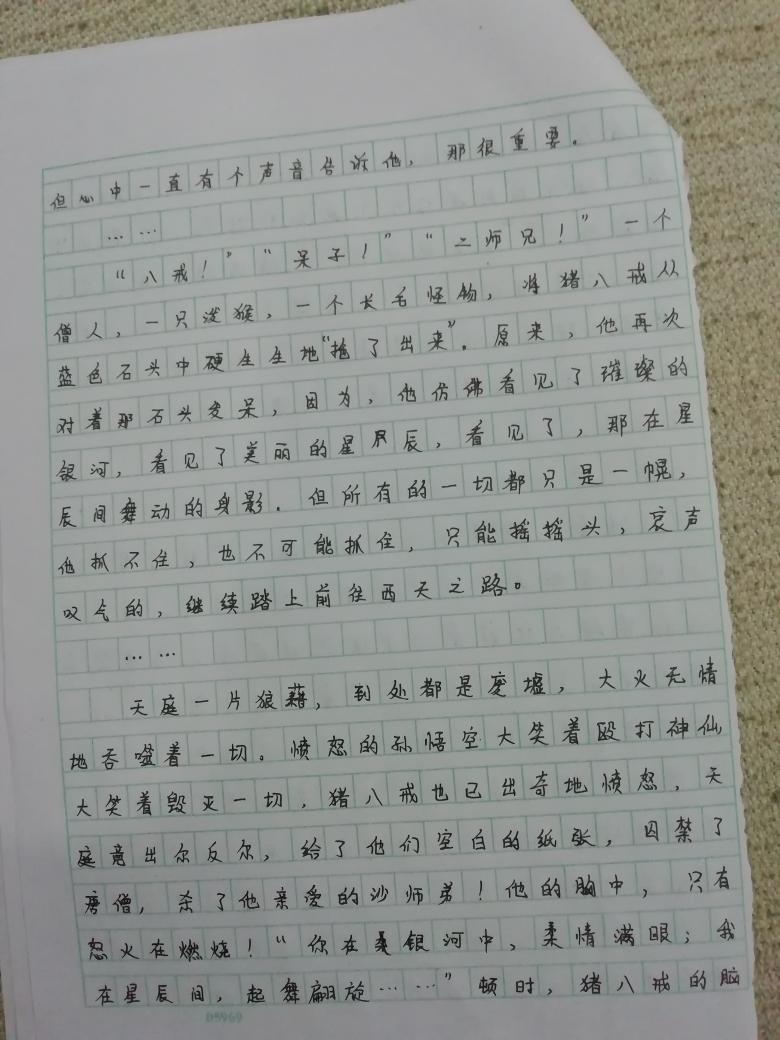 但心中一直有个声音告诉他，那很重要。
……
“八戒！”“呆子！”“二师兄！”一个
僧人，一只泼猴，一个长毛怪物，将猪八戒从
蓝色石头中硬生生地“拖了出来”。原来，他再次
对着那石头发呆，因为，他仿佛看见了璀璨的
银河，看见了美丽的星辰，看见了，那在星
辰间舞动的身影。但所有的一切都只是一幌，
他抓不住，也不可能抓住，只能摇摇头，哀声
叹气的，继续踏上前往西天之路。
……
天庭一片狼藉，到处都是废墟，大火无情
地吞噬着一切。愤怒的孙悟空大笑着殴打神仙
大笑着毁灭一切，猪八戒也已出奇地愤怒，天
庭竟出尔反尔，给了他们空白的纸张，囚禁了
唐僧，杀了他亲爱的沙师弟！他的胸中，只有
怒火在燃烧！“你在银河中，柔情满眼；我
在星辰间，起舞翩旋……”顿时，猪八戒的脑
05969